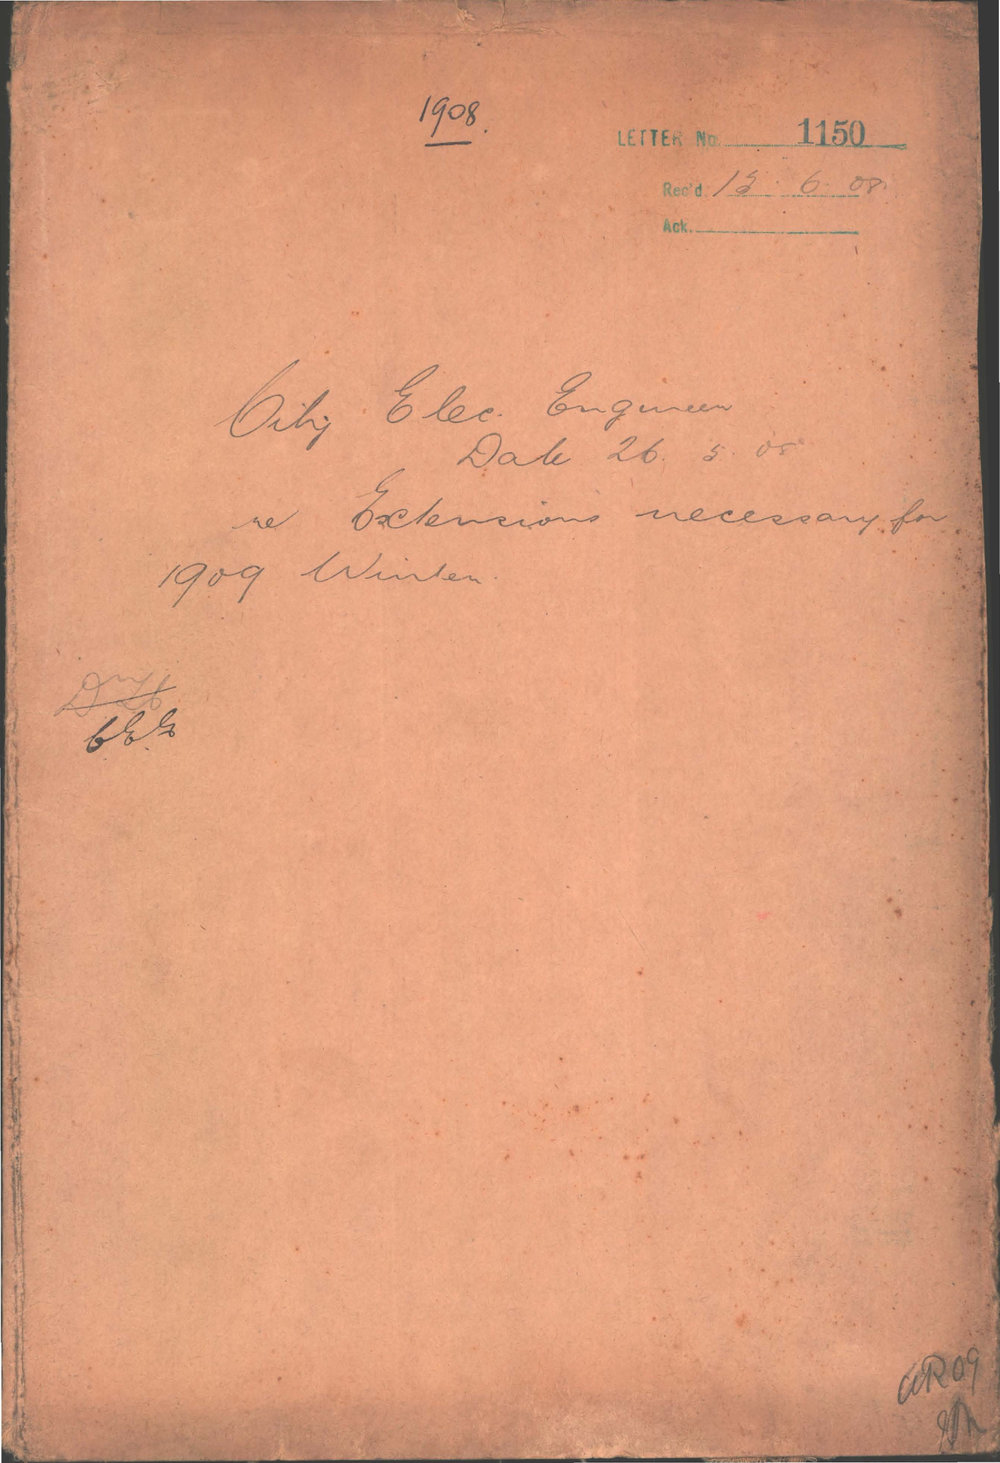 1908.
LETTER No. 1150
Rec'd. 15. 6. 08.
Ack.
City Elec. Engineer
Date 26. 5. 08
re Extensions necessary for
1909 Winter.
C.E.E.